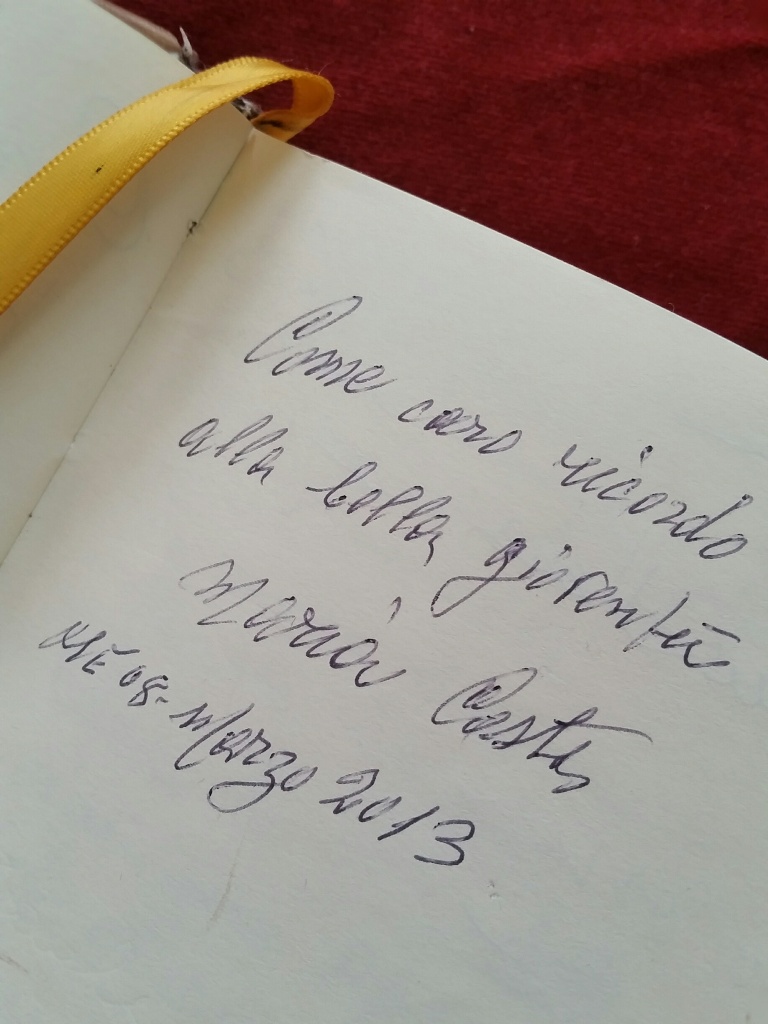 Come caro ricordo
alla bella gioventù
Maria Costa
ME 08-Marzo 2013